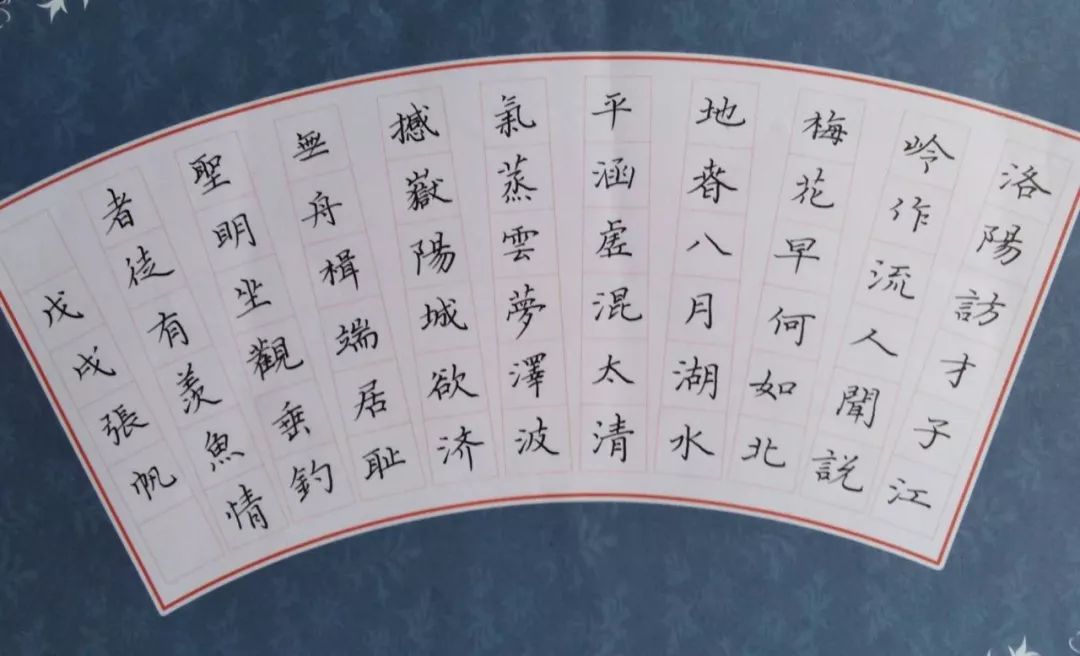 洛陽訪才子江
岭作流人聞説
梅花早何如北
地春八月湖水
平涵虚混太清
氣蒸雲夢澤波
撼嶽陽城欲济
無舟楫端居耻
聖明坐觀垂釣
者徒有羨魚情
戊戌張帆